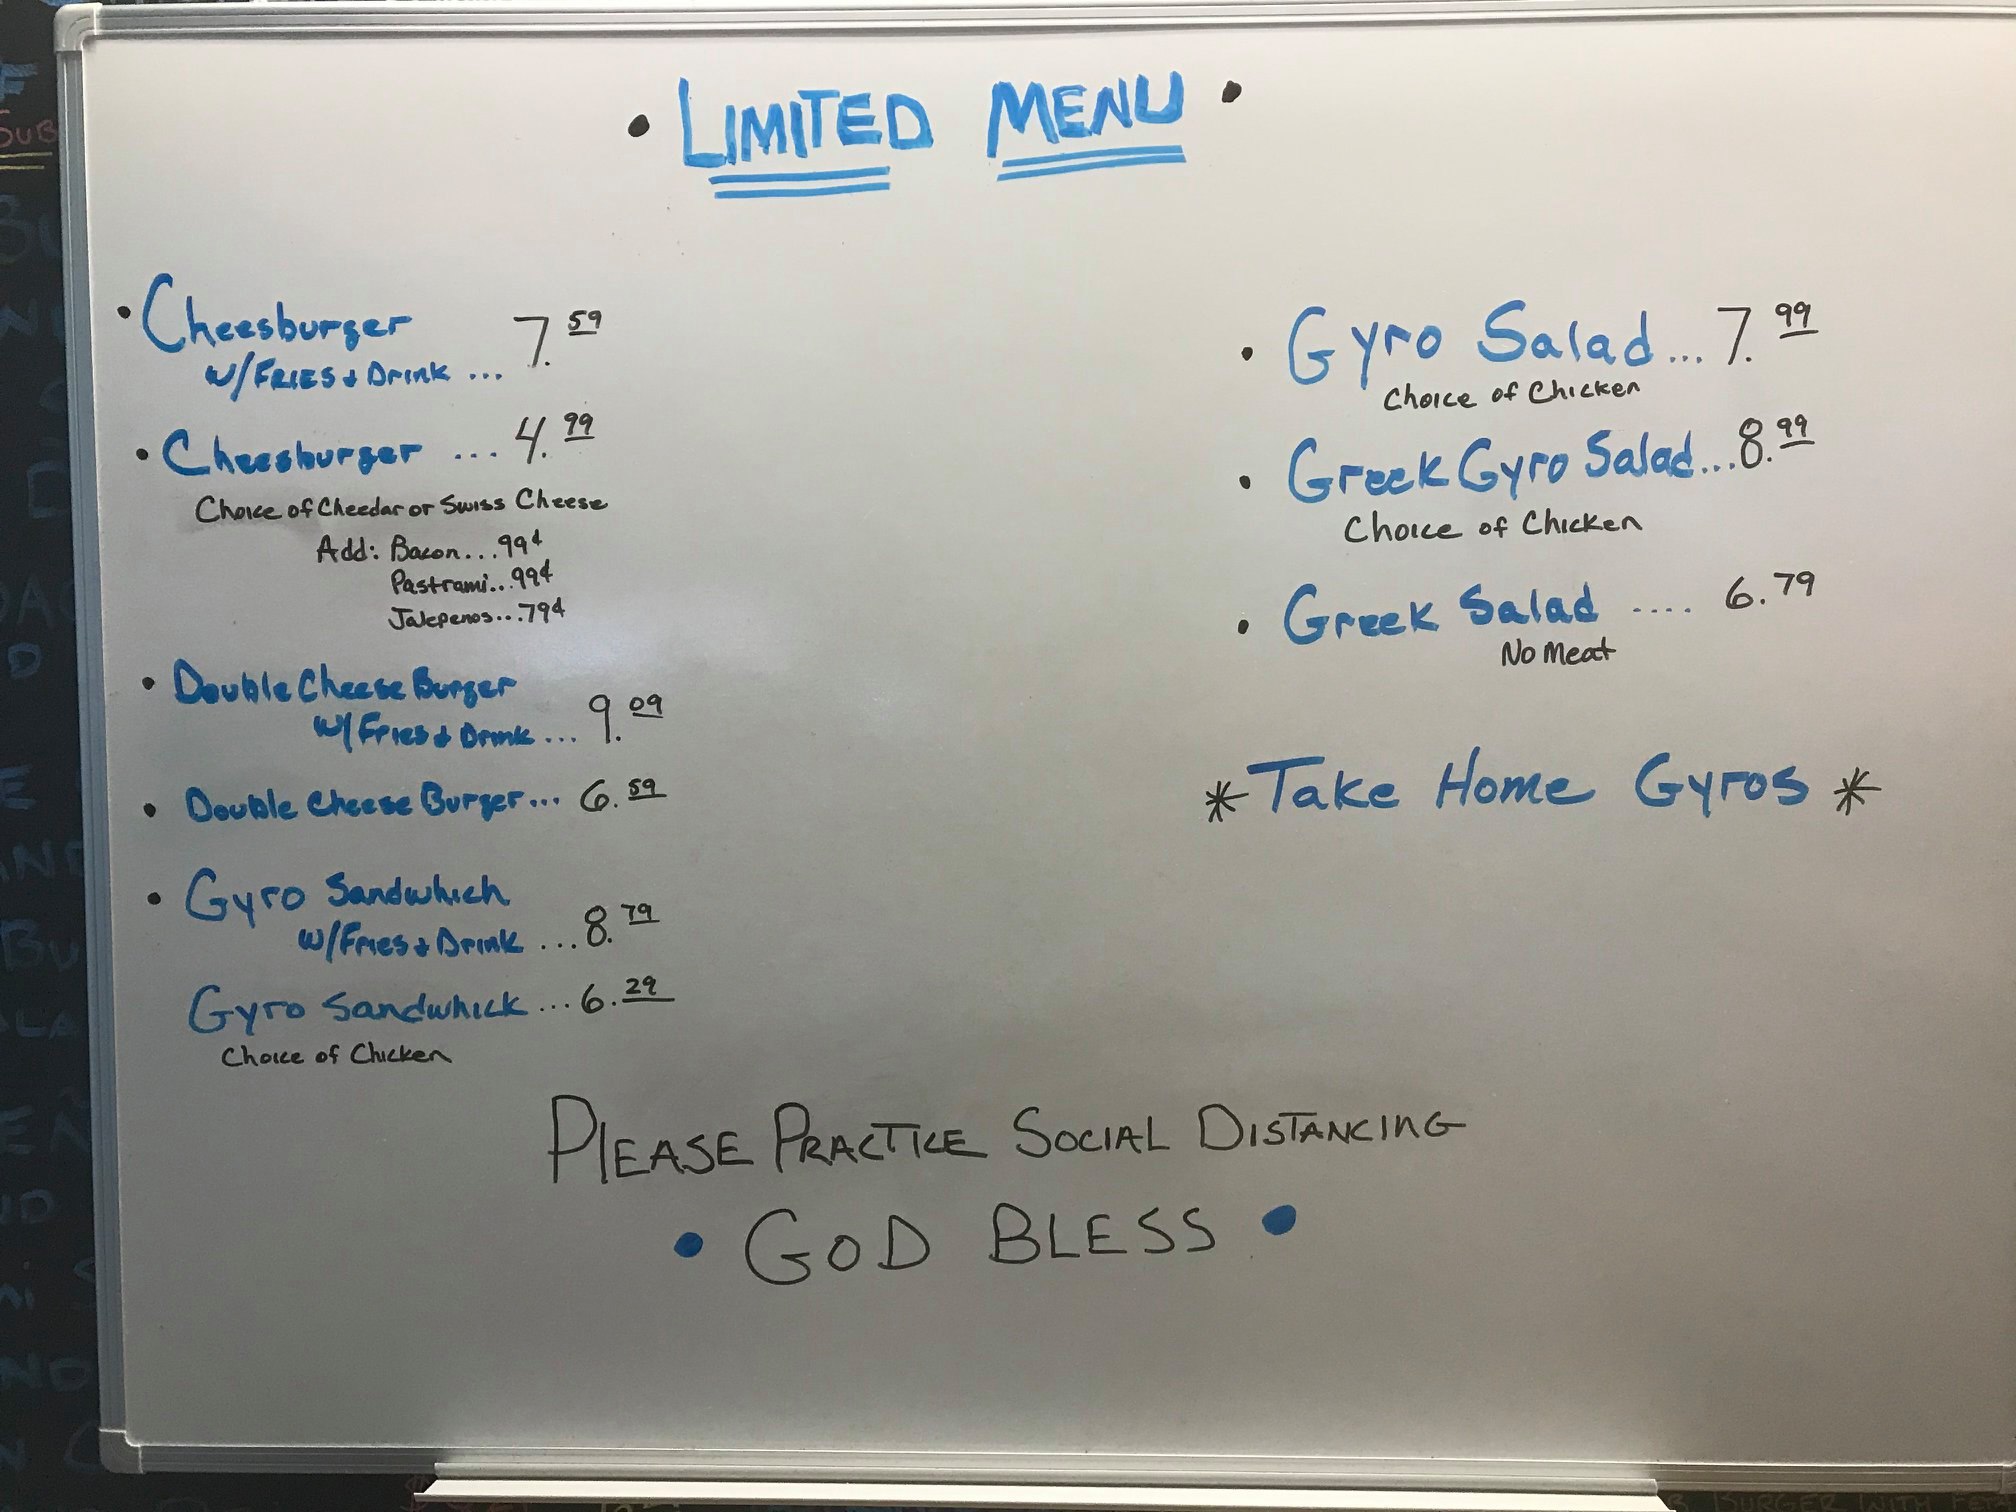 • LIMITED MENU •
• Cheesburger
w/FRIES & Drink ... 7.59
• Cheesburger ... 4.99
Choice of Cheedar or Swiss Cheese
Add: Bacon...99¢
Pastrami...99¢
Jalepenos...79¢
• Double Cheese Burger
w/Fries & Drink ... 9.09
• Double Cheese Burger... 6.59
• Gyro Sandwhich
w/Fries & Drink ...8.79
Gyro Sandwhick ...6.29
Choice of Chicken
• Gyro Salad...7.99
Choice of Chicken
• Greek Gyro Salad...8.99
Choice of Chicken
• Greek Salad .... 6.79
No Meat
*Take Home Gyros*
PLEASE PRACTICE SOCIAL DISTANCING
• GOD BLESS •